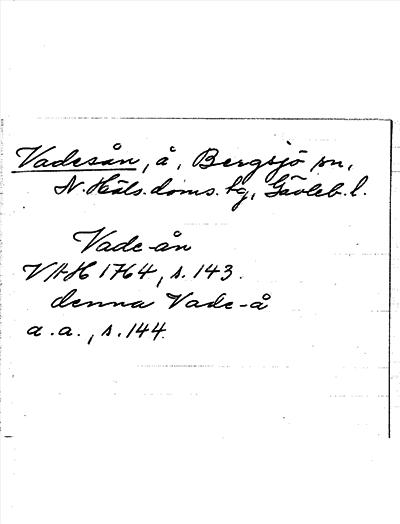 Vadesån, å, Bergsjö sn,
N. Häls. doms. tg, Gävleb. l.
Vade-ån
VAH 1764, s. 143.
denna Vade-å
a. a., s. 144.